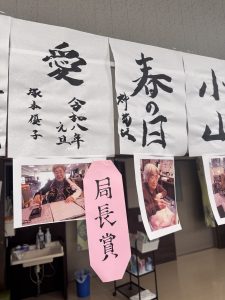 愛
令和八年
元旦
塚本優子
春の日
小山
局長賞